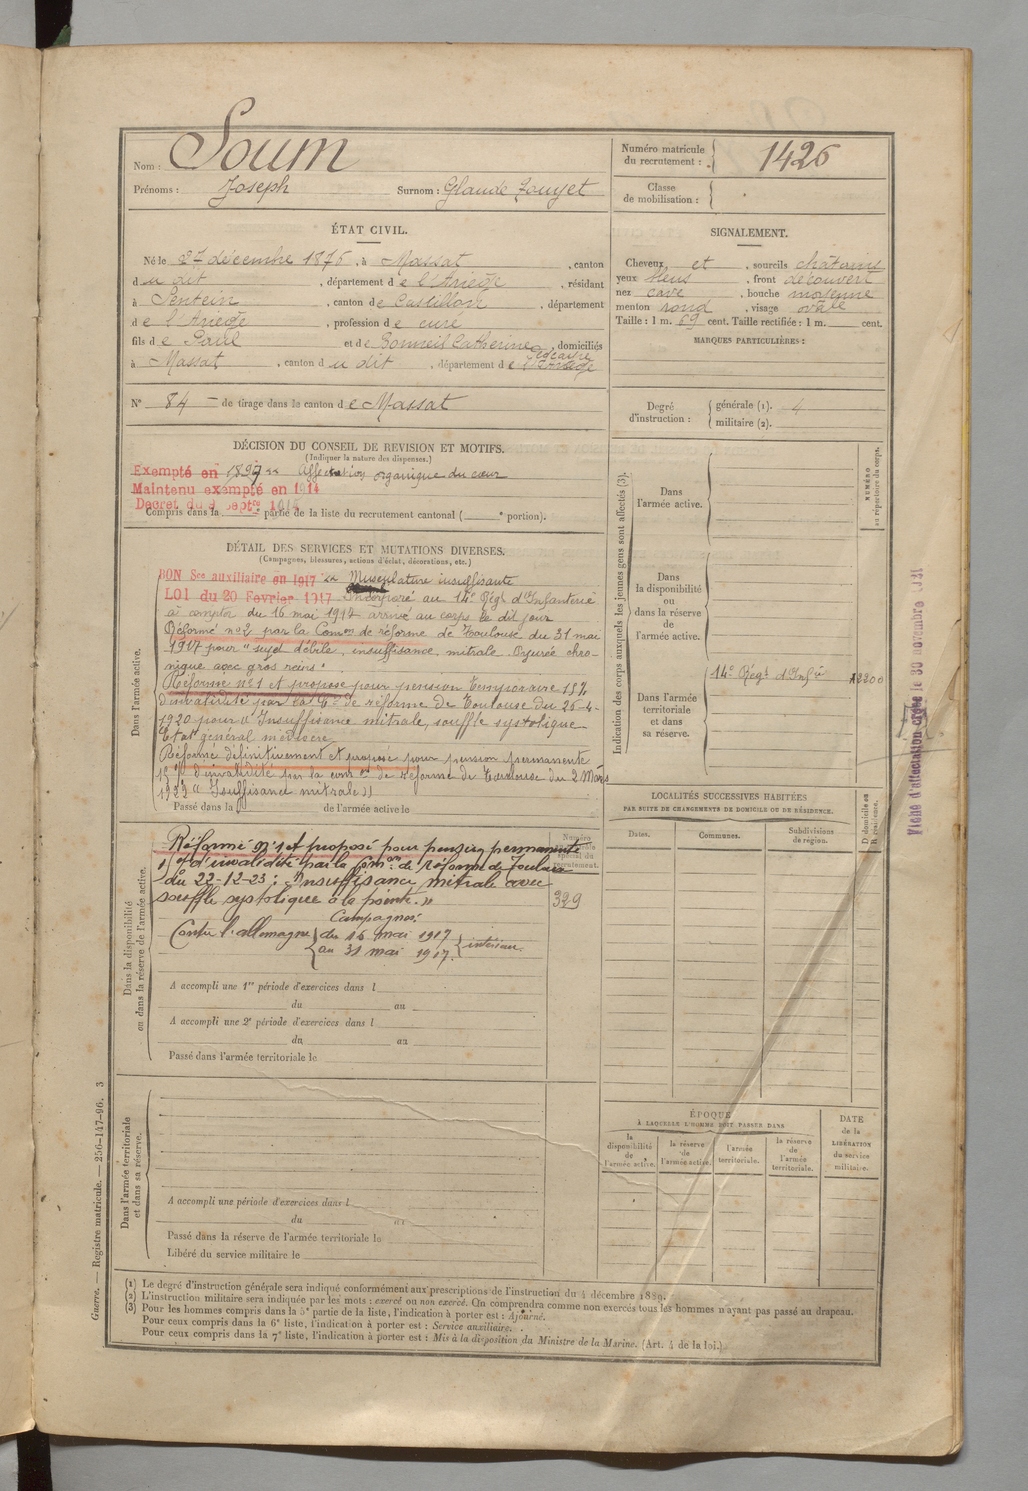 Nom : Soum
Prénoms : Joseph Surnom : Glaude
Numéro matricule
du recrutement : 1426
Classe
de mobilisation :
ÉTAT CIVIL.
Né le 27 décembre 1876, à Massat, canton
du dit, département de l'Ariège, résidant
à Sentein, canton de Castillon, département
de l'Ariège, profession de curé
fils de Paul et de Catherine, domiciliés
à Massat, canton du dit, département de
N° 84 de tirage dans le canton de Massat
SIGNALEMENT.
Cheveux et, sourcils châtains
yeux bleus, front découvert
nez cave, bouche moyenne
menton rond, visage ovale
Taille : 1 m. 69 cent. Taille rectifiée : 1 m. cent.
MARQUES PARTICULIÈRES :
Degré
d'instruction :
générale (1). 4
militaire (2).
DÉCISION DU CONSEIL DE REVISION ET MOTIFS.
(Indiquer la nature des dispenses.)
Exempté en 1897 organique du cœur
Maintenu exempté en 1914
Décret du 9 septbre 1914
Compris dans la partie de la liste du recrutement cantonal ( portion).
DÉTAIL DES SERVICES ET MUTATIONS DIVERSES.
(Campagnes, blessures, actions d'éclat, décorations, etc.)
Dans l'armée active.
BON Sce auxiliaire en 1917 Musculature insuffisante
LOI du 20 Fevrier 1917 Incorporé au 14e Régt d'Infanterie
à compter du 16 mai 1917 arrivé au corps le dit jour
Réformé n°2 par la Comon de réforme de Toulouse du 31 mai
1917 pour "sujet débile, insuffisance mitrale chro-
nique avec gros reins".
Réformé n°1 et proposé pour pension temporaire 15%
d'invalidité par la Con de réforme de Toulouse du 26-4-
1920 pour "Insuffisance mitrale, souffle systolique
Etat général médiocre
Réformé définitivement et proposé pour pension permanente
d'invalidité par la comon de réforme de Toulouse du 2 Mars
1922 "Insuffisance mitrale"
Passé dans la de l'armée active le
Dans la disponibilité
ou dans la réserve de l'armée active.
Réformé n°1 et proposé pour pension permanente
d'invalidité par la Comon de réforme de Toulouse
du 22-12-23 : "Insuffisance mitrale avec
souffle systolique à la pointe."
Campagnes :
Contre l'allemagne du 16 mai 1917
au 31 mai 1917. intérieur.
Numéro
spécial du
recrutement.
329
A accompli une 1re période d'exercices dans l
du au
A accompli une 2e période d'exercices dans l
du au
Passé dans l'armée territoriale le
Dans l'armée territoriale
et dans sa réserve.
A accompli une période d'exercices dans l
du au
Passé dans la réserve de l'armée territoriale le
Libéré du service militaire le
Indication des corps auxquels les jeunes gens sont affectés (3).
NUMÉRO
au répertoire du corps.
Dans
l'armée active.
Dans
la disponibilité
ou
dans la réserve
de
l'armée active.
Dans l'armée
territoriale
et dans
sa réserve.
14e Régt d'Infie
LOCALITÉS SUCCESSIVES HABITÉES
PAR SUITE DE CHANGEMENTS DE DOMICILE OU DE RÉSIDENCE.
Dates.
Communes.
Subdivisions
de région.
D. domicile ou
R. résidence.
ÉPOQUE
À LAQUELLE L'HOMME DOIT PASSER DANS
la
disponibilité
de
l'armée active.
la réserve
de
l'armée active.
l'armée
territoriale.
la réserve
de
l'armée
territoriale.
DATE
de la
LIBÉRATION
du service
militaire.
Fiche d'affectation créée le 30 novembre
(1) Le degré d'instruction générale sera indiqué conformément aux prescriptions de l'instruction du 4 décembre 1889.
(2) L'instruction militaire sera indiquée par les mots : exercé ou non exercé. On comprendra comme non exercés tous les hommes n'ayant pas passé au drapeau.
(3) Pour les hommes compris dans la 5e partie de la liste, l'indication à porter est : Ajourné.
Pour ceux compris dans la 6e liste, l'indication à porter est : Service auxiliaire.
Pour ceux compris dans la 7e liste, l'indication à porter est : Mis à la disposition du Ministre de la Marine. (Art. 4 de la loi.)
Guerre. — Registre matricule. — 256-147-96. 3